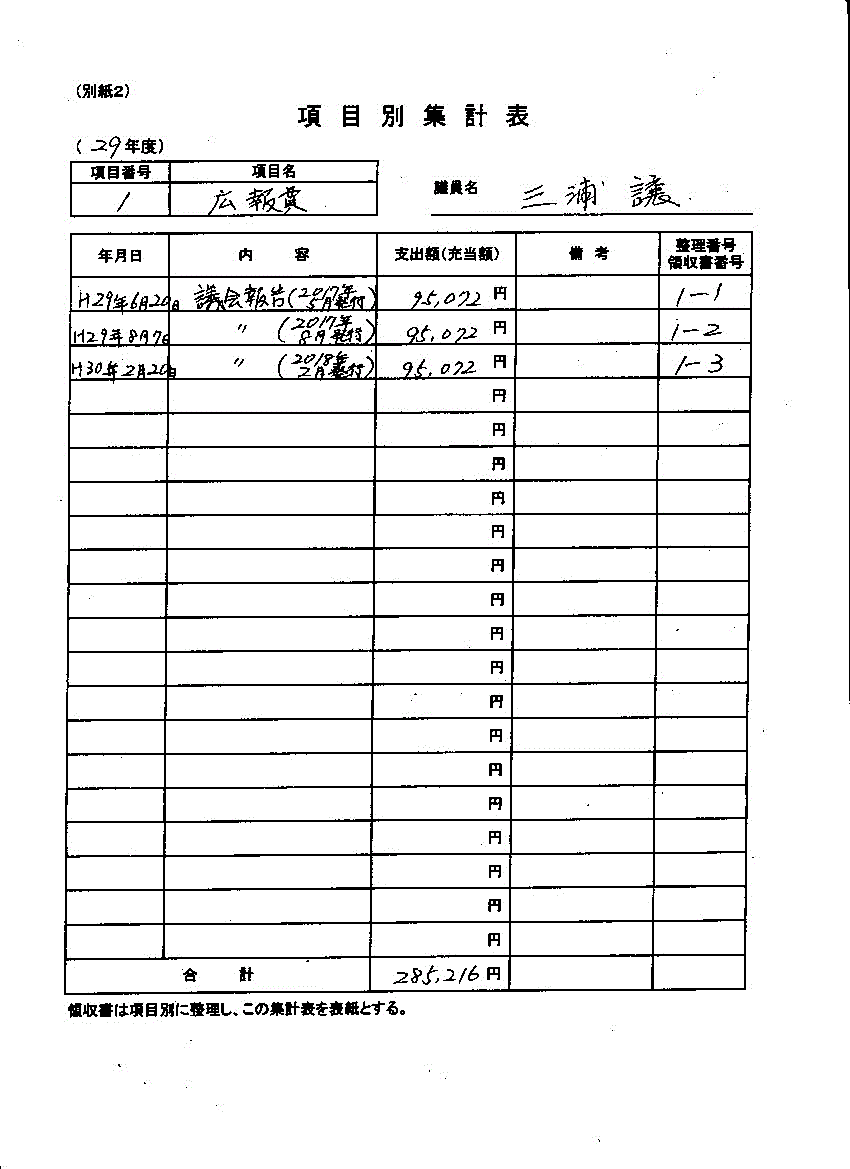 (別紙2)
項目別集計表
(29年度)
項目番号 項目名
1 広報費 議員名 三浦 譲
年月日 内容 支出額(充当額) 備考 整理番号 領収書番号
H29年6月20日 議会報告(2017年5月発行) 95,072円 1-1
H29年8月7日 〃 (2017年8月発行) 95,072円 1-2
H30年2月20日 〃 (2018年2月発行) 95,072円 1-3
円
円
円
円
円
円
円
円
円
円
円
円
円
円
円
円
円
合計 285,216円
領収書は項目別に整理し、この集計表を表紙とする。